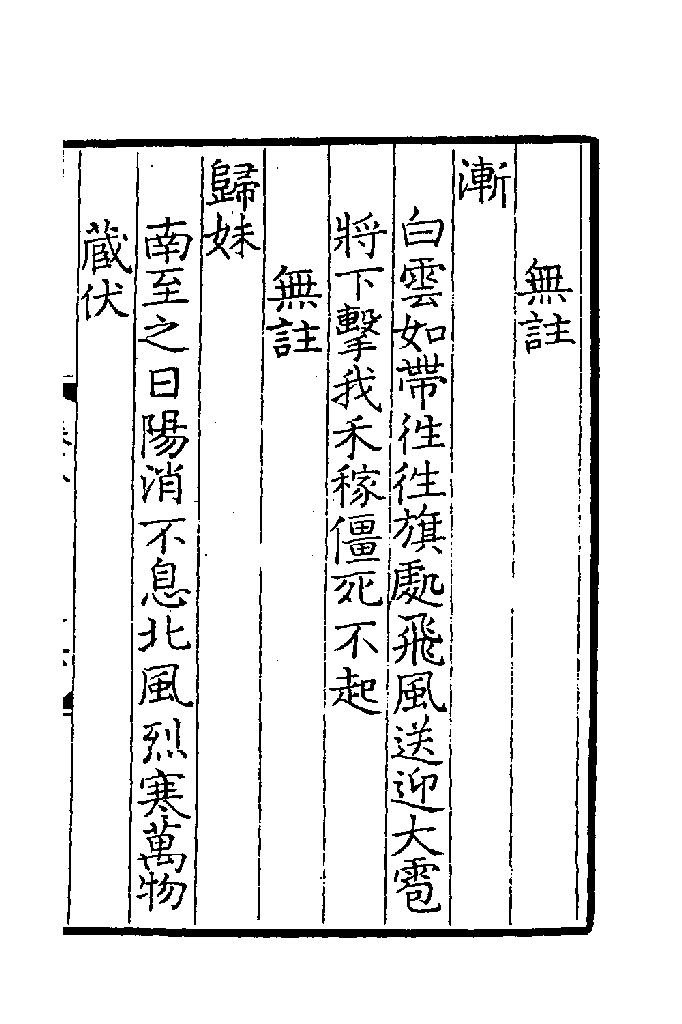 無註
漸
白雲如帶徃徃旗處飛風送迎大雹
將下擊我禾稼僵死不起
無註
歸妹
南至之日陽消不息北風烈寒萬物
蔵伏